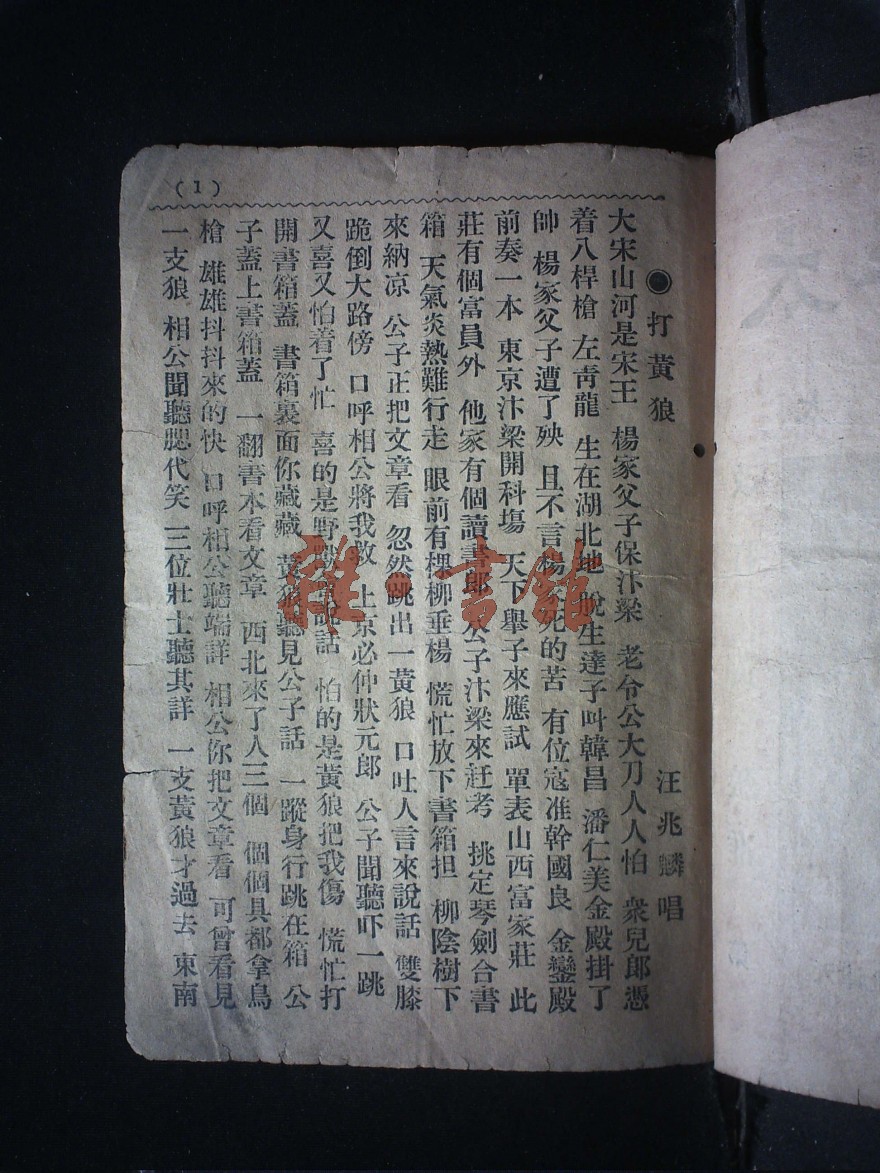 (1)
●打黃狼
汪兆麟唱
大宋山河是宋王 楊家父子保汴梁 老令公大刀人人怕 衆兒郎憑
着八桿槍 左靑龍 生在湖北地 脫生達子叫韓昌 潘仁美金殿掛了
帥 楊家父子遭了殃 且不言楊家死的苦 有位寇准幹國良 金鑾殿
前奏一本 東京汴梁開科塲 天下舉子來應試 單表山西富家莊 此
莊有個富員外 他家有個讀書郎 公子汴梁來赶考 挑定琴劍合書
箱 天氣炎熱難行走 眼前有棵柳垂楊 慌忙放下書箱担 柳陰樹下
來納凉 公子正把文章看 忽然跳出一黃狼 口吐人言來說話 雙膝
跪倒大路傍 口呼相公將我救 上京必仲狀元郎 公子聞聽吓一跳
又喜又怕着了忙 喜的是野獸 說話 怕的是黃狼把我傷 慌忙打
開書箱蓋 書箱裏面你藏藏 黃狼聽見公子話 一蹤身行跳在箱 公
子蓋上書箱蓋 一翻書本看文章 西北來了人三個 個個具都拿鳥
槍 雄雄抖抖來的快 口呼相公聽端詳 相公你把文章看 可曾看見
一支狼 相公聞聽腮代笑 三位壯士聽其詳 一支黃狼才過去 東南
雅 書館